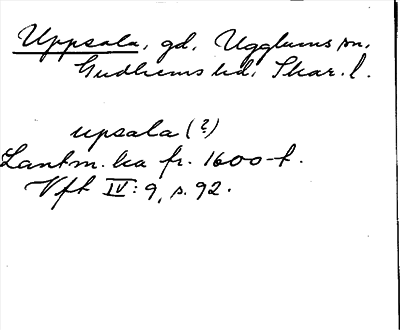 Uppsala, gd, Ugglums sn,
Gudhems hd, Skar. l.
upsala (?)
Lantm. ka fr. 1600-t.
Vft IV: 9, s. 92.